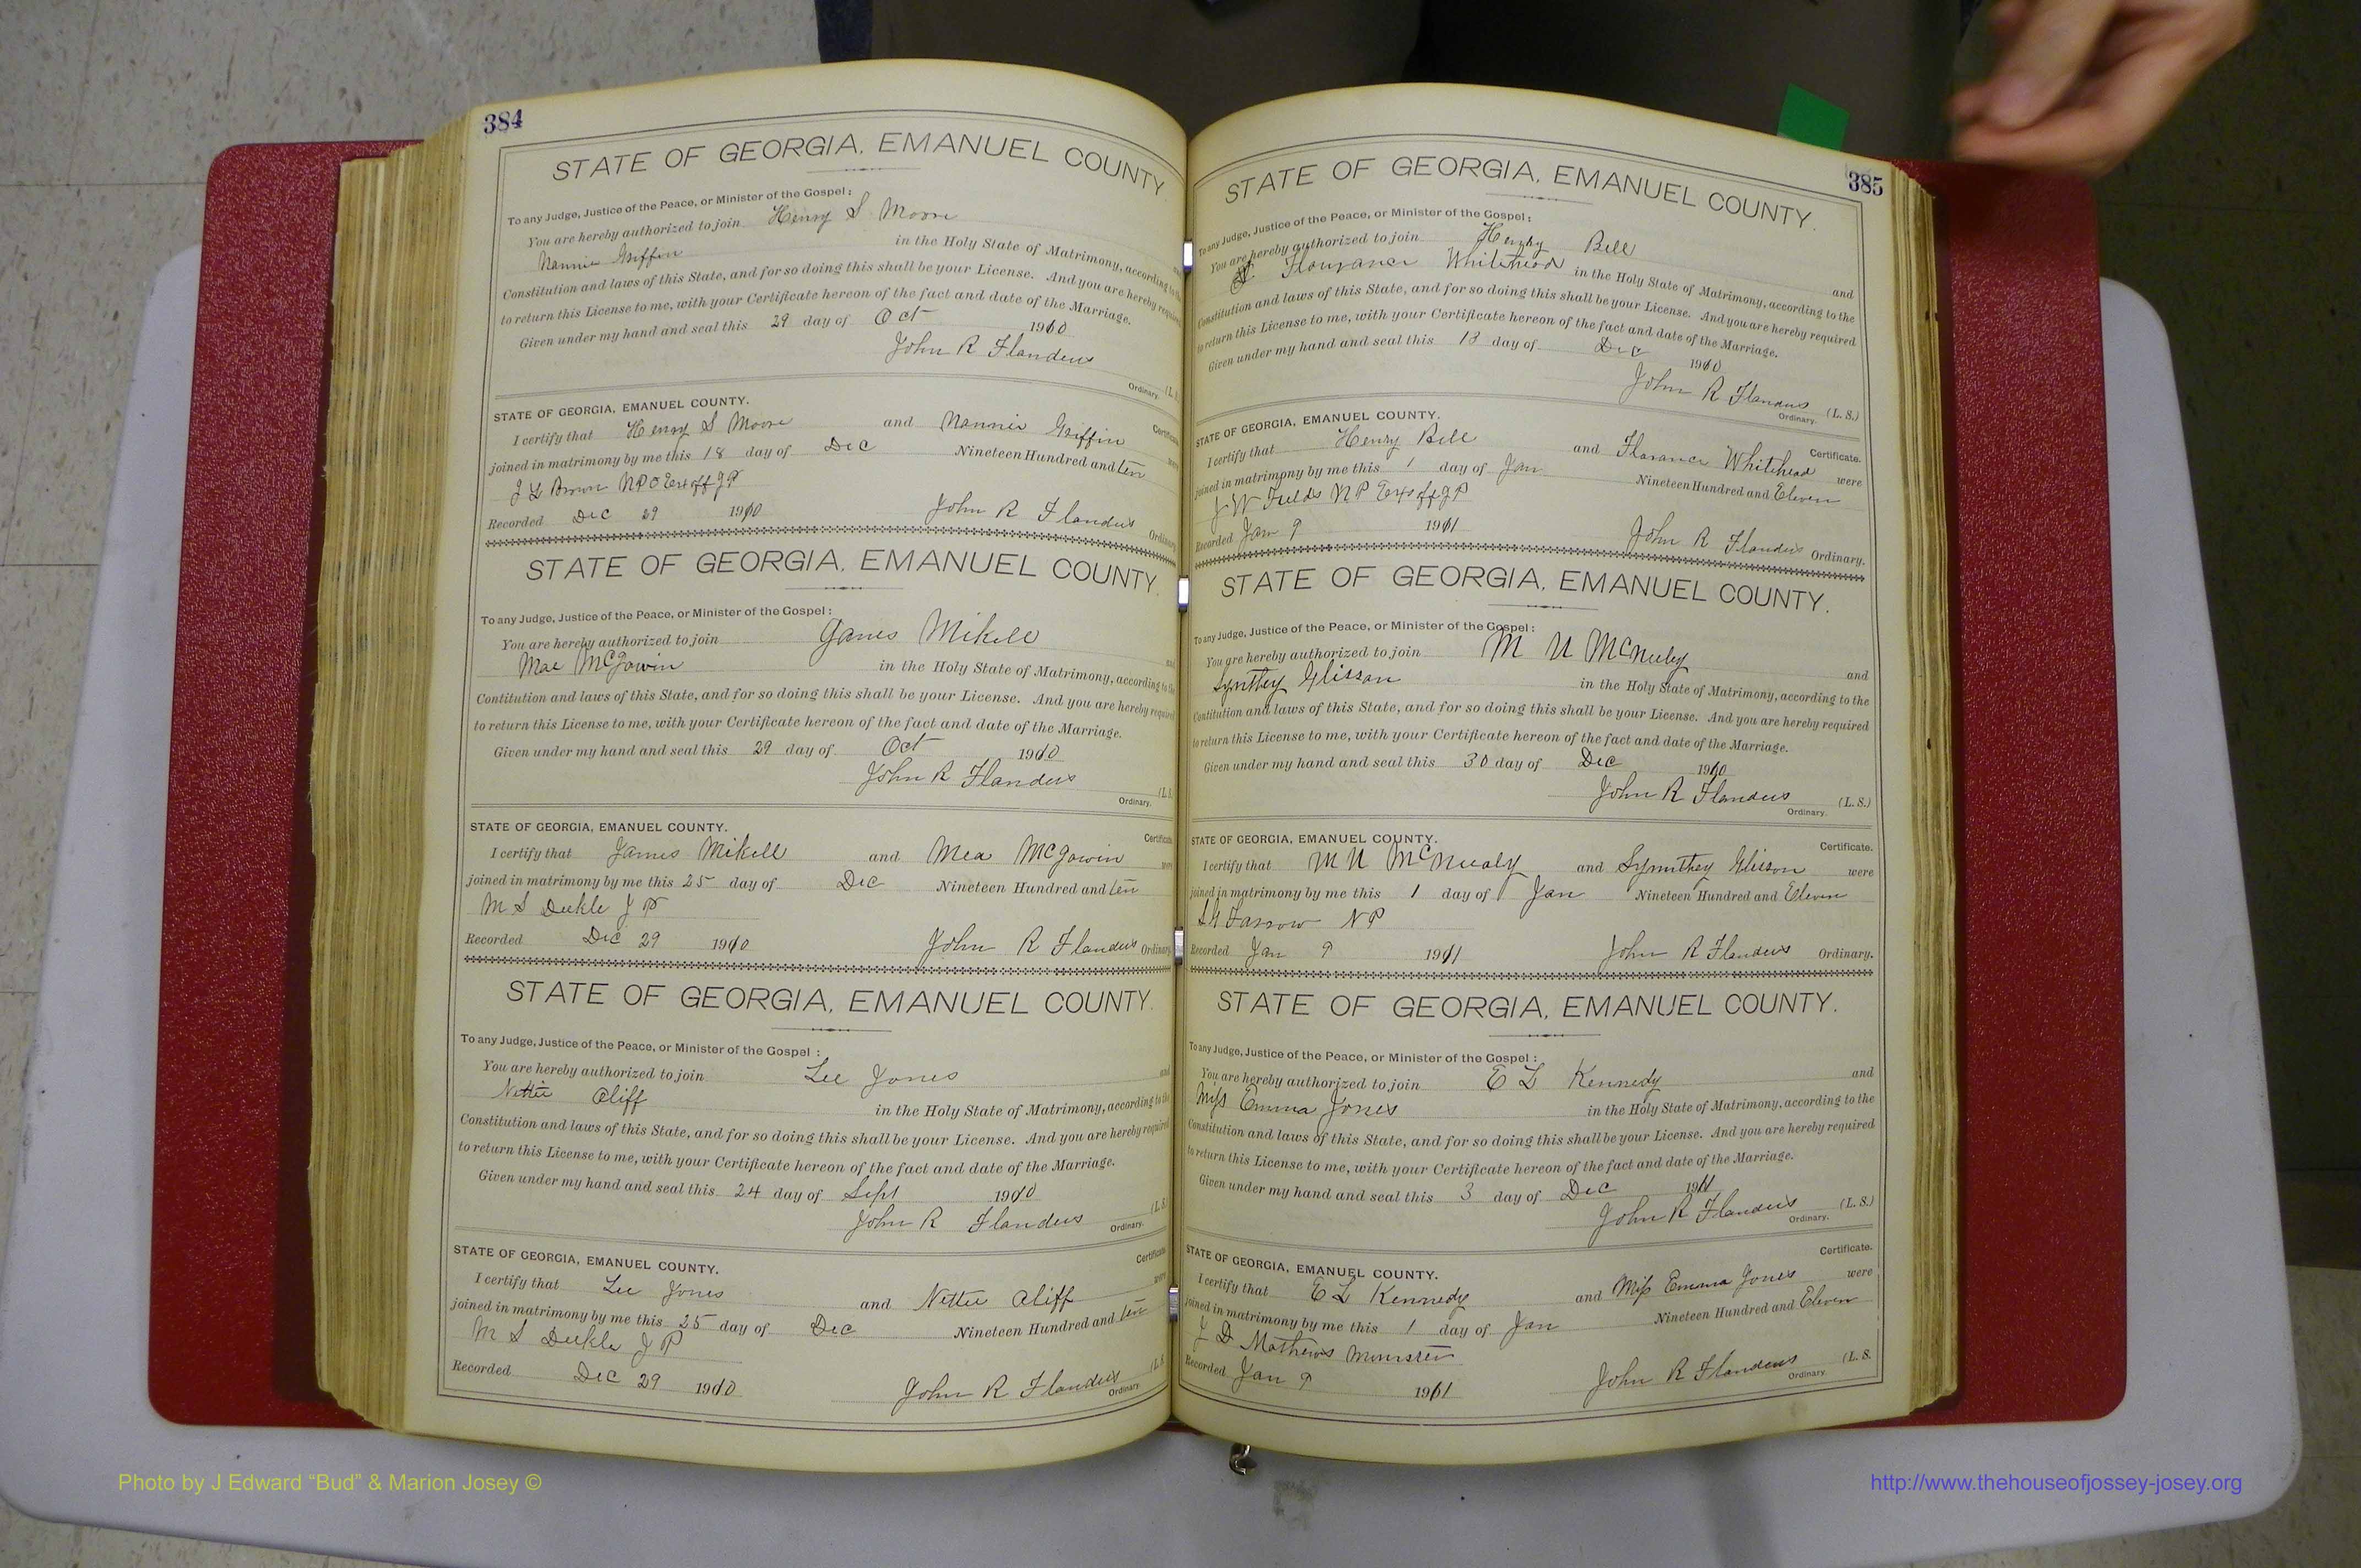 384
STATE OF GEORGIA, EMANUEL COUNTY
To any Judge, Justice of the Peace, or Minister of the Gospel:
You are hereby authorized to join Henry S Moore
Nannie Griffin in the Holy State of Matrimony, according to the
Constitution and laws of this State, and for so doing this shall be your License. And you are hereby required
to return this License to me, with your Certificate hereon of the fact and date of the Marriage.
Given under my hand and seal this 29 day of Oct 1910
John R Flanders
Ordinary. (L. S.
STATE OF GEORGIA, EMANUEL COUNTY.
Certificate
I certify that Henry S Moore and Nannie Griffin
were
joined in matrimony by me this 18 day of Dec Nineteen Hundred and ten
J L Brown N P & Exoff J P
Recorded Dec 29 1910 John R Flanders Ordinary
STATE OF GEORGIA, EMANUEL COUNTY.
To any Judge, Justice of the Peace, or Minister of the Gospel:
You are hereby authorized to join James Mikell and
Mae McGowin in the Holy State of Matrimony, according to the
Contitution and laws of this State, and for so doing this shall be your License. And you are hereby required
to return this License to me, with your Certificate hereon of the fact and date of the Marriage.
Given under my hand and seal this 29 day of Oct 1910
John R Flanders (L. S.
Ordinary.
STATE OF GEORGIA, EMANUEL COUNTY.
Certificate
I certify that James Mikell and Mea McGowin were
joined in matrimony by me this 25 day of Dec Nineteen Hundred and ten
M S Deekle J P
Recorded Dec 29 1910 John R Flanders Ordinary
STATE OF GEORGIA, EMANUEL COUNTY.
To any Judge, Justice of the Peace, or Minister of the Gospel:
You are hereby authorized to join Lee Jones and
Nettie Cliff in the Holy State of Matrimony, according to the
Constitution and laws of this State, and for so doing this shall be your License. And you are hereby required
to return this License to me, with your Certificate hereon of the fact and date of the Marriage.
Given under my hand and seal this 24 day of Sept 1910
John R Flanders (L. S.)
Ordinary.
STATE OF GEORGIA, EMANUEL COUNTY.
Certificate
I certify that Lee Jones and Nettie Cliff were
joined in matrimony by me this 25 day of Dec Nineteen Hundred and ten
M S Deekle J P
Recorded Dec 29 1910 John R Flanders (L. S.
Ordinary.
385
STATE OF GEORGIA, EMANUEL COUNTY.
To any Judge, Justice of the Peace, or Minister of the Gospel:
You are hereby authorized to join Henry Bell and
Flourance Whitehead in the Holy State of Matrimony, according to the
Constitution and laws of this State, and for so doing this shall be your License. And you are hereby required
to return this License to me, with your Certificate hereon of the fact and date of the Marriage.
Given under my hand and seal this 13 day of Dec 1910
John R Flanders (L. S.)
Ordinary.
STATE OF GEORGIA, EMANUEL COUNTY.
Certificate.
I certify that Henry Bell and Florance Whitehead were
joined in matrimony by me this 1 day of Jan Nineteen Hundred and Eleven
J W Fields N P Exoff J P
Recorded Jan 9 1911 John R Flanders Ordinary.
STATE OF GEORGIA, EMANUEL COUNTY.
To any Judge, Justice of the Peace, or Minister of the Gospel:
You are hereby authorized to join M U McNeely and
Synthey Glisson in the Holy State of Matrimony, according to the
Contitution and laws of this State, and for so doing this shall be your License. And you are hereby required
to return this License to me, with your Certificate hereon of the fact and date of the Marriage.
Given under my hand and seal this 30 day of Dec 1910
John R Flanders (L. S.)
Ordinary.
STATE OF GEORGIA, EMANUEL COUNTY.
Certificate.
I certify that M U McNeealy and Symthey Glisson were
joined in matrimony by me this 1 day of Jan Nineteen Hundred and Eleven
Farrow N P
Recorded Jan 9 1911 John R Flanders Ordinary.
STATE OF GEORGIA, EMANUEL COUNTY.
To any Judge, Justice of the Peace, or Minister of the Gospel:
You are hereby authorized to join E L Kennedy and
Miss Emma Jones in the Holy State of Matrimony, according to the
Constitution and laws of this State, and for so doing this shall be your License. And you are hereby required
to return this License to me, with your Certificate hereon of the fact and date of the Marriage.
Given under my hand and seal this 3 day of Dec 1911
John R Flanders (L. S.)
Ordinary.
STATE OF GEORGIA, EMANUEL COUNTY.
Certificate.
I certify that E L Kennedy and Miss Emma Jones were
joined in matrimony by me this 1 day of Jan Nineteen Hundred and Eleven
J D Mathews Minister
Recorded Jan 9 1911 John R Flanders (L. S.
Ordinary.
Photo by J Edward “Bud” & Marion Josey ©
http://www.thehouseofjossey-josey.org